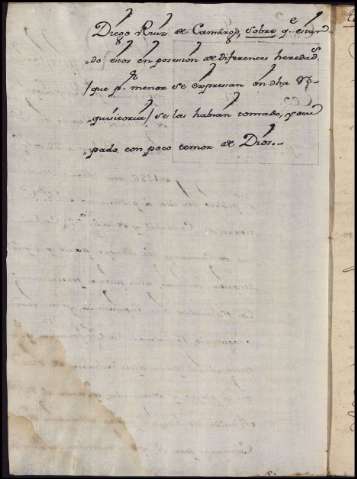 Diego Ruiz de Camargo, sobre q.e estan
do esos en posesion de diferentes hereds
(que p.r menor se expresan en dha Re
quisitoria) se las habian tomado, y ocu
pado con poco temor de Dios.